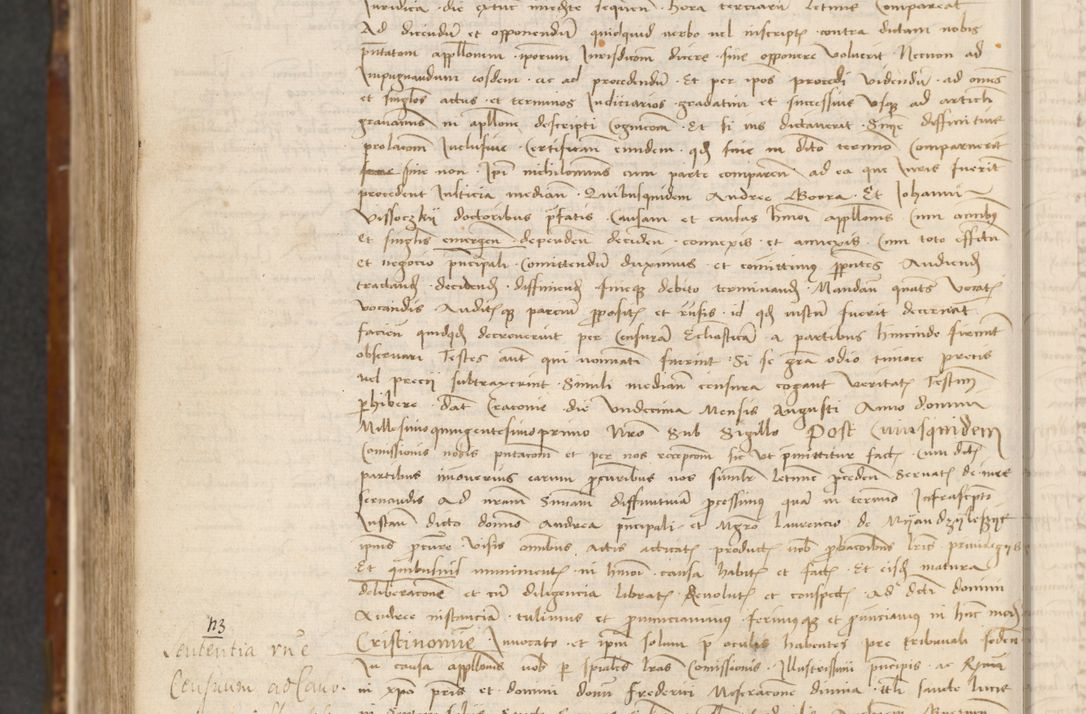 Juridica die extunc imediate sequen hora terciarum letime Compareat
Ad dicendum et opponendum quidquid verbo vel inscriptis contra dictam nobis
pntatam appllonum ipsorum Jurisdiconem dicere sive opponere voluerit Necnon ad
Impugnandum eosdem ac ad procedendum Et per ipos procedi videndum ad omes
et singlos actus et terminos Judiciarios gradatim et successive usq ad articli
gravamis in apllone descripti Cognicom Et si ius dictaverit Sinie diffinitive
prolacom Inclusive Certificam eundem qd sive in dicto termino Comparuerit
sive non Ipi nichilominus cum parte comparen ad ea que Juris fuerit
procedent Justicia median Quibusquidem Andree Borra Et Johanni
Vissoczky doctoribus pfatis Causam et causas hmoi appllonis Cum omnibus
et singlis emergen dependen deciden connexis et annexis Cum toto effectu
et negocio pncipali Comittendum duximus et comittimus ppntes Audiend
tractand decidend diffiniend fineq debito terminand Mandan quatus Vocatis
vocandis Auditisq parcium ppositis et rusis id qd iustum fuerit decernat
facien quidqd decreverint per Censuram Ecliasticam a partibus hincinde firmit
observari Testes aut qui nominati fuerint Si se gra odio timore pretis
vel precii subtraxerint Simili median censura cogant Veritatis Testim
phibere Dat Cracovie die Undecima Mensis Augusti Anno domini
Millesimoquingentesimoprimo Nro Sub Sigillo Post Cuiusquidem
Comissionis nobis pntacom et per nos recepcom sic ut pmittitur factis Cum dictis
partibus imoverius earum pcuribus nos simlr letime pceden Servatis de iure
servandis Ad nram Sinnam diffinitivam pcessimus quam in termino Infrascripto
Instan dicto domino Andrea pncipali et Mgro Laurencio de Myandzyleszye
ipius pcure visis omnibus actis acticatis productis nob pbacoibus lris privilegys
Et quibusuis munimentis in hmoi causa habitis et factis Et eisd matura
deliberacone et cum diligencia libratis Revolutis et conspectis Ad dcti domini
Andree instanciam tulimus et pnunciavimus ferimusq et pnunciamus in hunc mod
Cristi nomine Invocato et ipm solum p oculis habentes pre tribunali seden
In causa appllonis nob p spiales lras Comissionis Illustrissimi pncipis ac Rmi
in xpo pris et domini domi Frederici Miseracone divina tli sancte lucie
113
Sententia